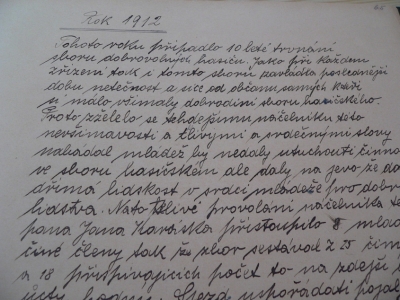 Rok 1912
Tohoto roku připadlo 10 leté trvání
sboru dobrovolných hasičů. Jako při každém
zřízení tak i tomto sboru zavládla poslednější
dobu netečnost a sice od občanů samých kteří
si málo všímaly dobrodiní sboru hasičského.
Proto zželelo se tehdejšímu náčelníku této
nevšímavosti a tklivými a srdečnými slovy
nabádal mládež by nedaly utuchouti činno
ve sboru hasičském ale daly na jevo že do
dříma lidskost v srdci mládeže pro dobr
lidstva. Nato tklivé provolání náčelníka te
pana Jana Karáska přistoupilo 8 mlad
činé členy tak že sbor sestával z 25 čin
a 18 přispívajících počet to na zdejší
úcty hodný. Sjezd uspořádati pojal